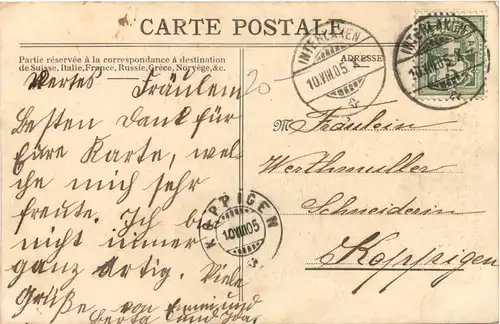 CARTE POSTALE
Partie réservée à la correspondance à destination
de Suisse, Italie, France, Russie, Grèce, Norvége, &c.
ADRESSE
INTERLAKEN
10.VIII.05
INTERLAKEN
10.VIII.05
20
Wertes Fräulein
Besten Dank für
Eure Karte, wel-
che mich sehr
freute. Ich b
nicht immer
ganz artig. Viele
Grüße, von Emmi und
Berta und Ida
KOPPIGEN
10.VIII.05
M Fräulein
Werthmüller
Schneiderin
Koppigen